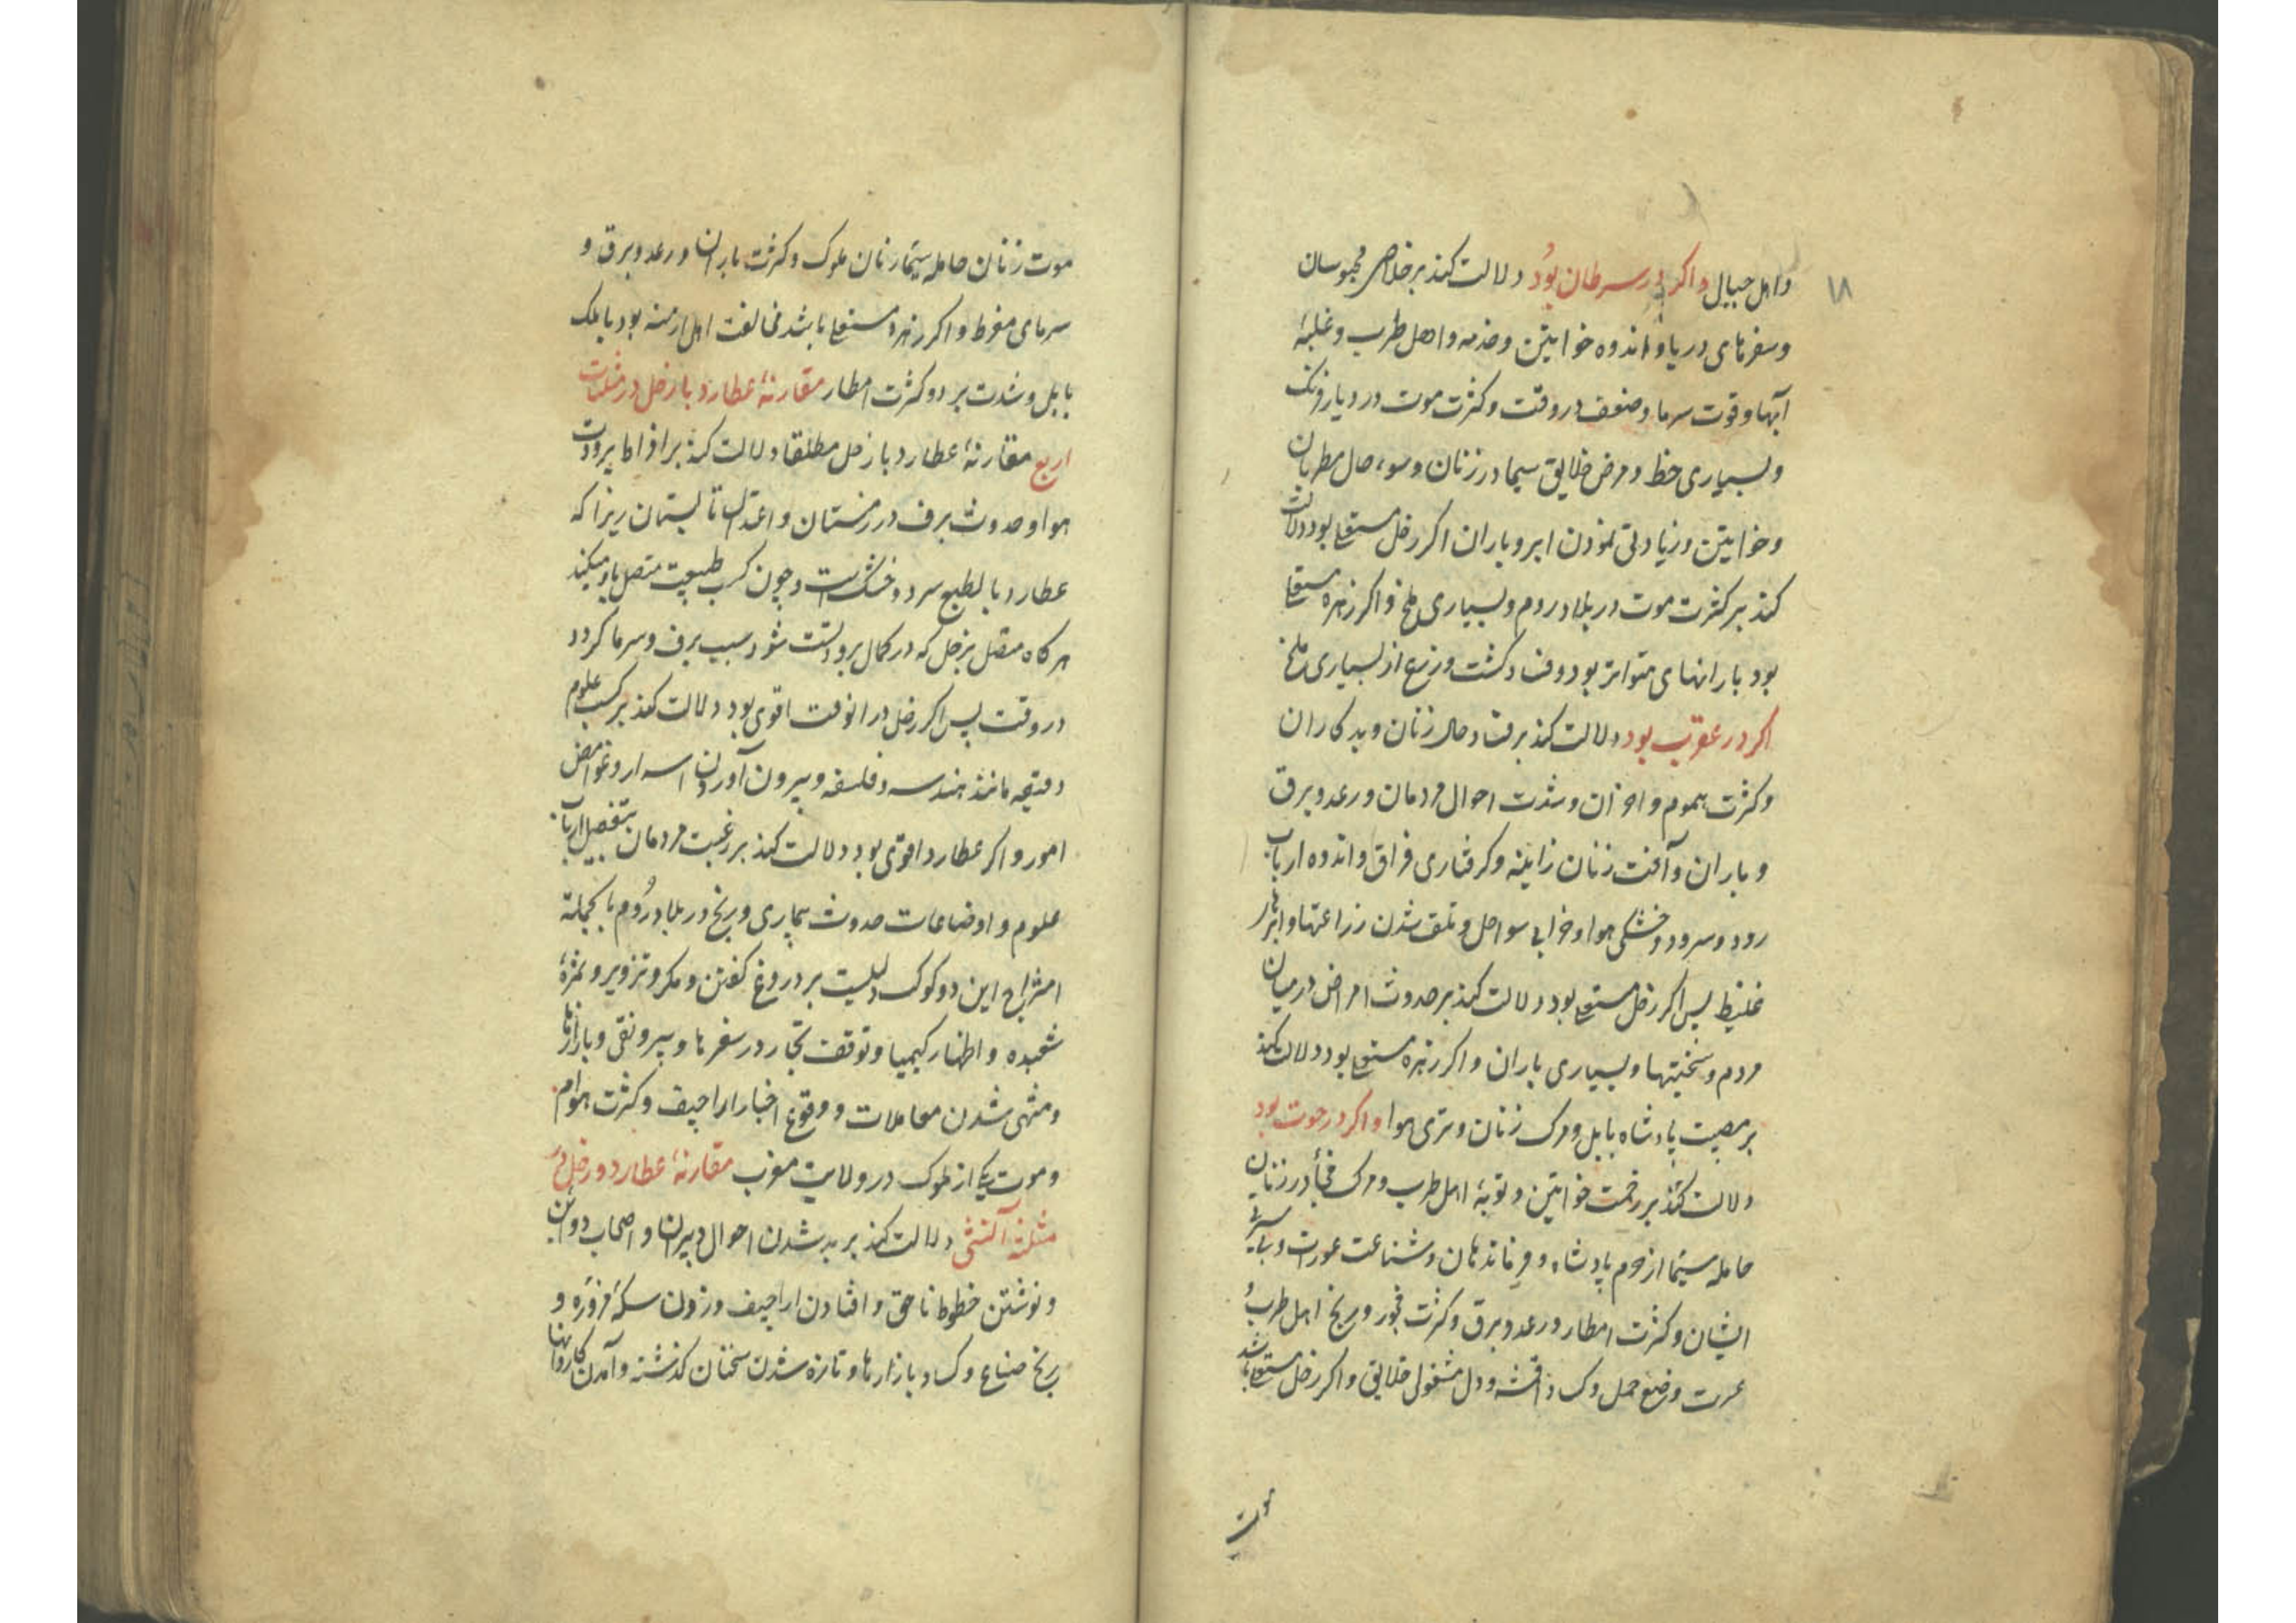 ۱۸
واهل جبال واکر در سرطان بود دلالت کند بر خلاص محبوسان
وسفرهای دریا و اندوه خواتین و خدمه و اهل طرب و غلبهٔ
آبها و قوت سرما و ضعف در وقت و کثرت موت در دیار فرنک
وبسیاری حظ و مرض خلایق سیما در زنان و سوء حال مطربان
وخواتین و زیادتی نمودن ابر و باران اکر زحل مستعلی بود دلالت
کند بر کثرت موت در بلاد روم و بسیاری ملخ و اکر زهره مستعلی
بود بارانهای متواتر بود و فساد کشت و زرع از بسیاری ملخ
اکر در عقرب بود دلالت کند بر فساد حال زنان و بدکاران
وکثرت هموم و احزان و شدت احوال مردمان و رعد و برق
و باران و آفت زنان زاینه و کرفتاری فراق و اندوه ارباب
رود و سرود و خشکی هوا و خرابی سواحل و تلف شدن زراعتها و ابرهار
غلیظ پس اکر زحل مستعلی بود دلالت کند بر حدوث امراض در میان
مردم و سختیها و بسیاری باران و اکر زهره مستعلی بود دلالت کند
بر مصیبت پادشاه بابل و مرک زنان و تری هوا و اکر در حوت بود
دلالت کند بر زحمت خواتین و توبهٔ اهل طرب و مرک فجأ در زنان
حامله سیما از حرم پادشاه و فرماندهان و شناعت عورات و
ایشان و کثرت امطار و رعد و برق و کثرت فجور و رنج اهل طرب و
عسرت وضع حمل و کساد اقمشه و دل مشغولی خلایق و اکر زحل مستعلی باشد
موت
موت زنان حامله سیما زنان ملوک و کثرت باران و رعد و برق و
سرمای مفرط و اکر زهره مستعلی باشد مخالفت اهل ارمنه بود با ملک
بابل و شدت برد و کثرت امطار مقارنهٔ عطارد با زحل در مثلثات
اربع مقارنهٔ عطارد با زحل مطلقا دلالت کند بر افراط برودت
هوا و حدوث برف در زمستان و اعتدال تابستان زیرا که
عطارد بالطبع سرد و خشکست و چون کسب طبیعت متصل باو میکند
هر کاه متصل بزحل که در کمال برودتست شود سبب برف و سرما کردد
در وقت پس اکر زحل در انوقت اقوی بود دلالت کند بر کسب علوم
دقیقه مانند هندسه و فلسفه و بیرون آوردن اسرار و غوامض
امور و اکر عطارد اقوی بود دلالت کند بر رغبت مردمان بتفصیل ارباب
علوم و اوضاعات حدوث بیماری و رنج در بلاد روم بالجمله
امتزاج این دو کوکب دلیلست بر دروغ کفتن و مکر و تزویر و ثمرهٔ
شعبده و اظهار کیمیا و توقف تجار در سفرها و بیرونقی و بازارها
و منتهی شدن معاملات و وقوع اخبار اراجیف و کثرت هوام
و موت یکی از ملوک در ولایت مغرب مقارنهٔ عطارد و زحل در
مثلثه آتشی دلالت کند بر بد شدن احوال دبیران و اصحاب دواوین
و نوشتن خطوط ناحق و افتادن اراجیف و زدن سکهٔ مزوره و
رنج صناع و کساد بازارها و تازه شدن سخنان کذشته و آمدن کاروانها